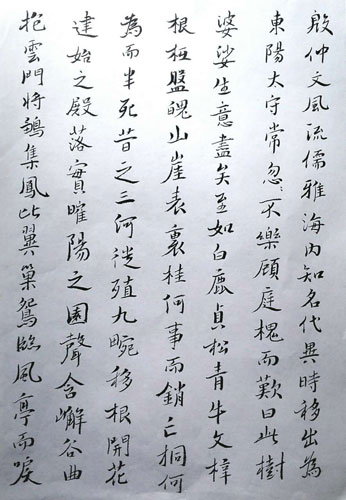 殷仲文風流儒雅海內知名代異時移出為
東陽太守常忽〻不樂顧庭槐而歎曰此樹
婆娑生意盡矣至如白鹿貞松青牛文梓
根柢盤魄山崖表裏桂何事而銷亡桐何
為而半死昔之三河徙殖九畹移根開花
建始之殿落實睢陽之園聲含嶰谷曲
抱雲門將鶵集鳳比翼巢鴛臨風亭而唳